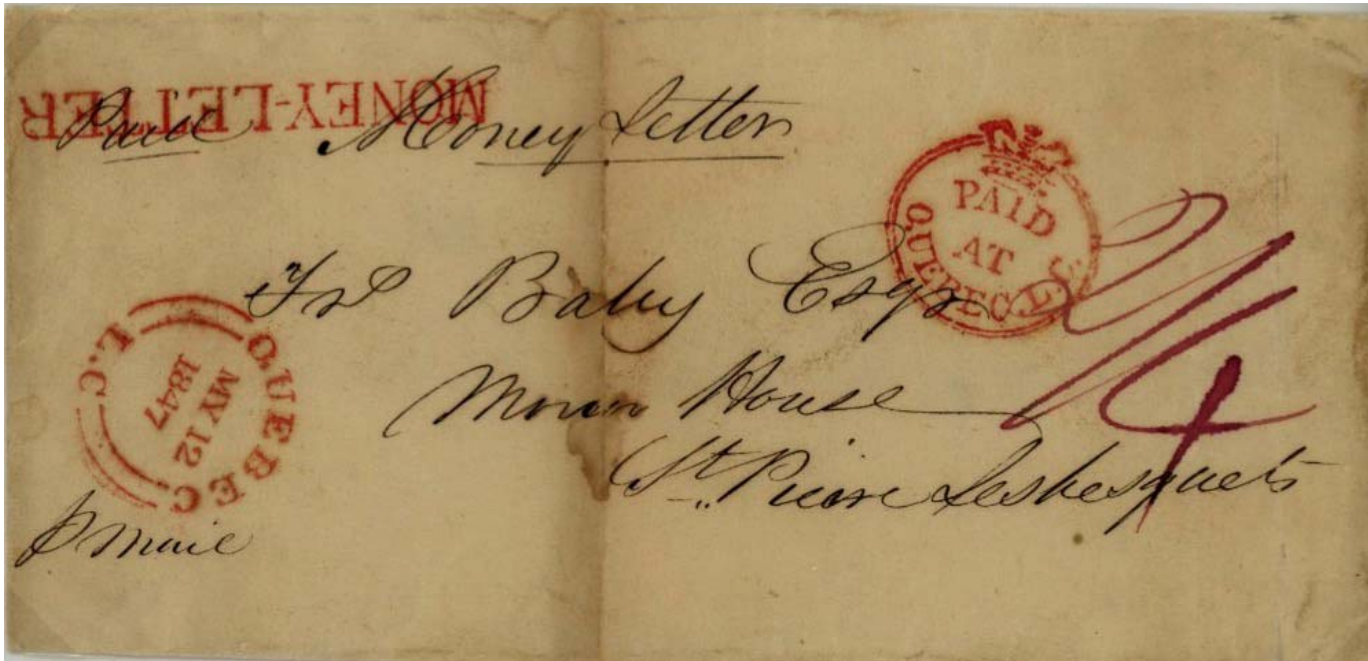 MONEY-LETTER
Paid Money Letter
PAID
AT
QUEBEC. L.C
2/4
Baby Esqr
House
St. Pierre Lesbesquets
QUEBEC. L.C
MY 12
1847
P Mail